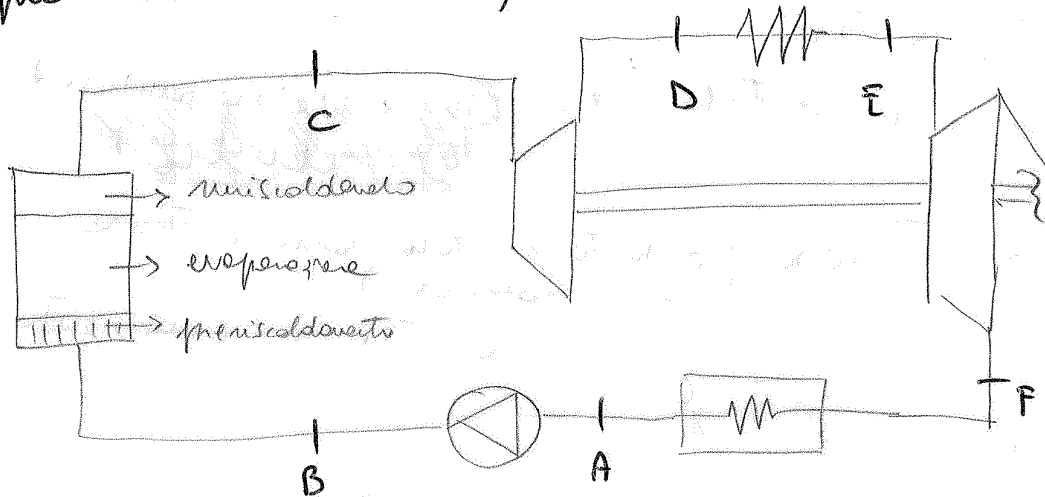 C
D
E
surriscaldamento
evaporazione
preriscaldamento
F
A
B